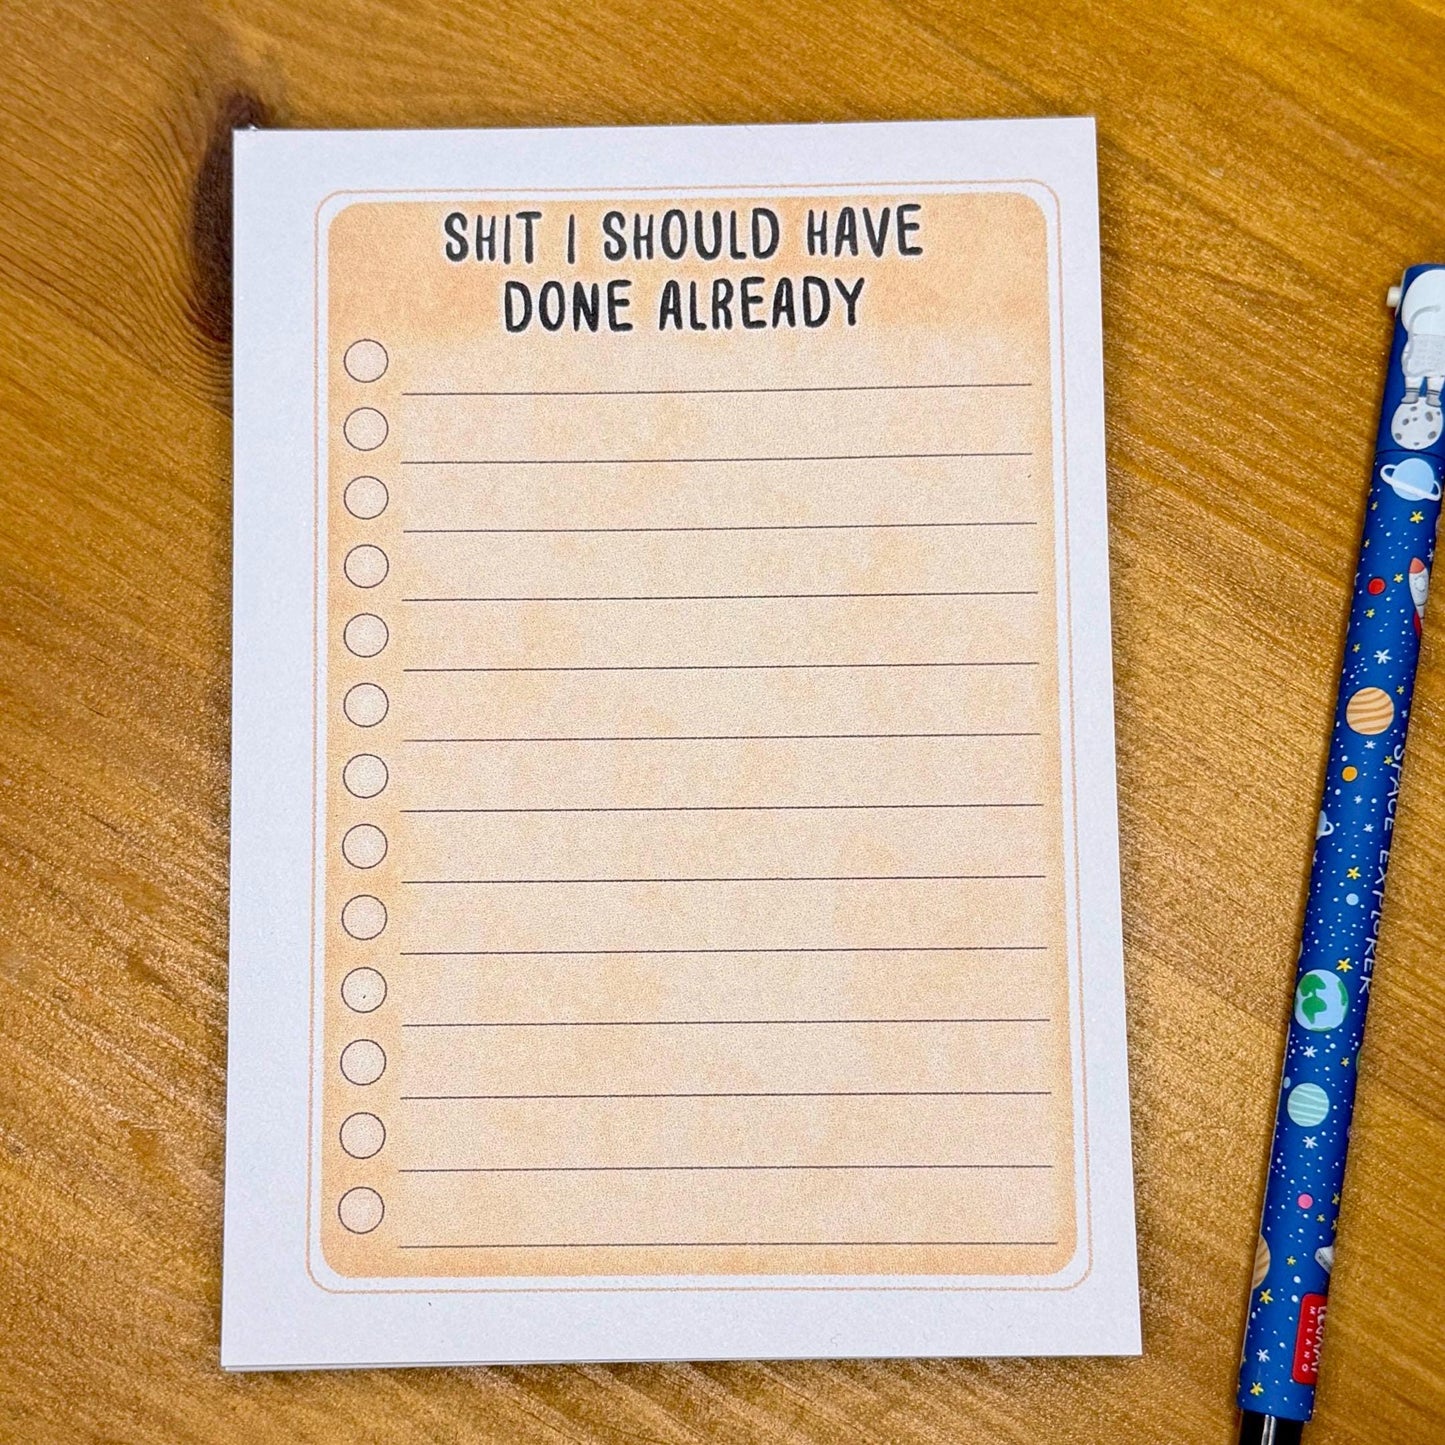 SHIT I SHOULD HAVE
DONE ALREADY
SPACE EXPLORER
LEGAMI
MILANO